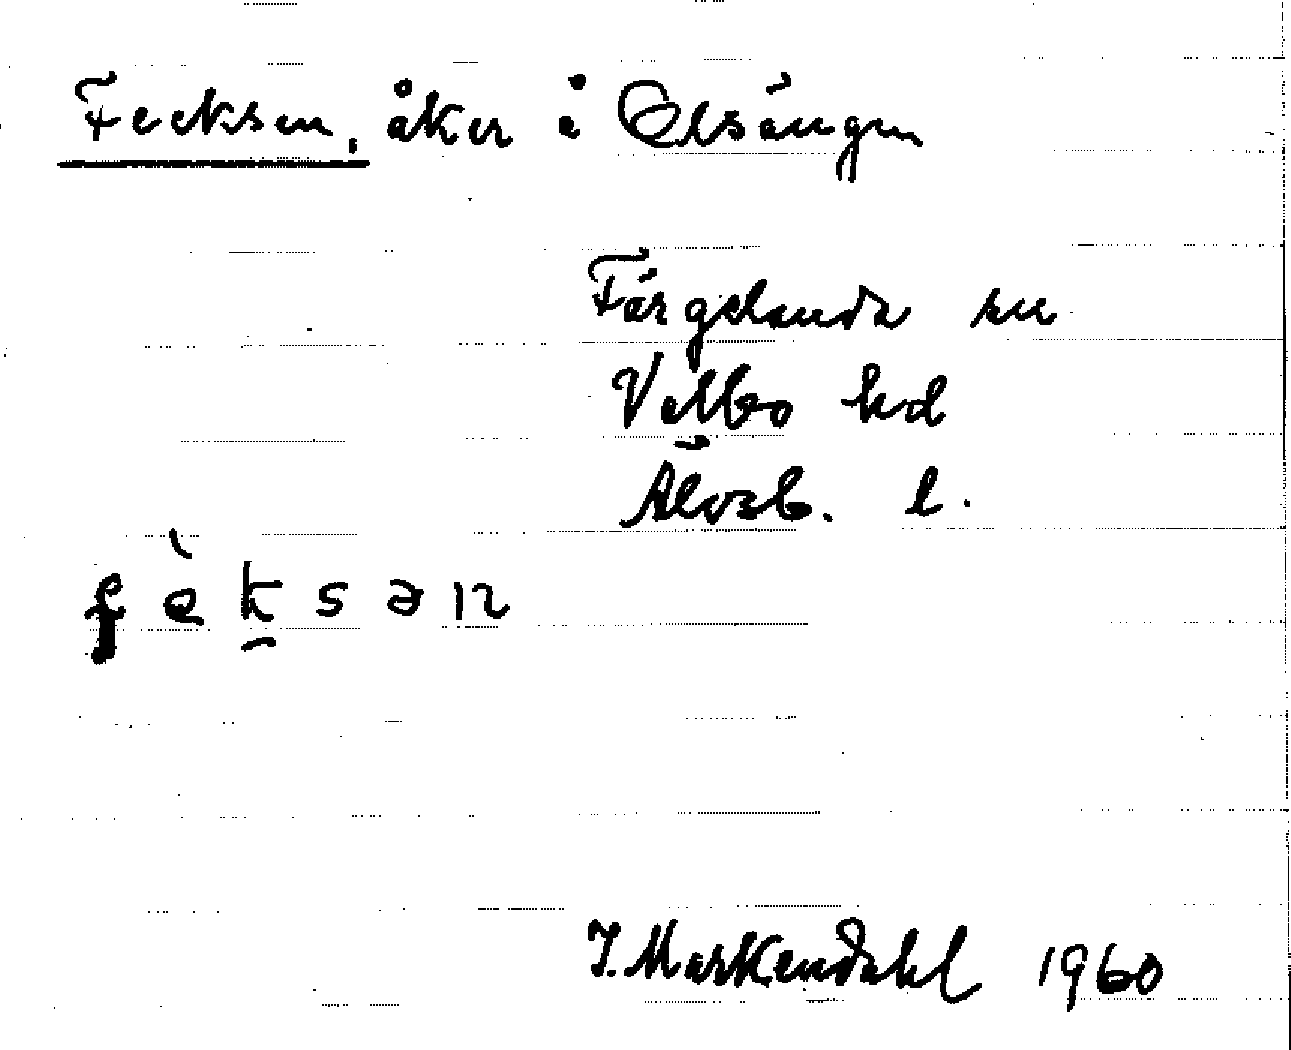 Fecksen, åker å Olsängen
Färgelanda sn
Valbo hd
Älvsb. l.
fèksən
I. Markendahl 1960